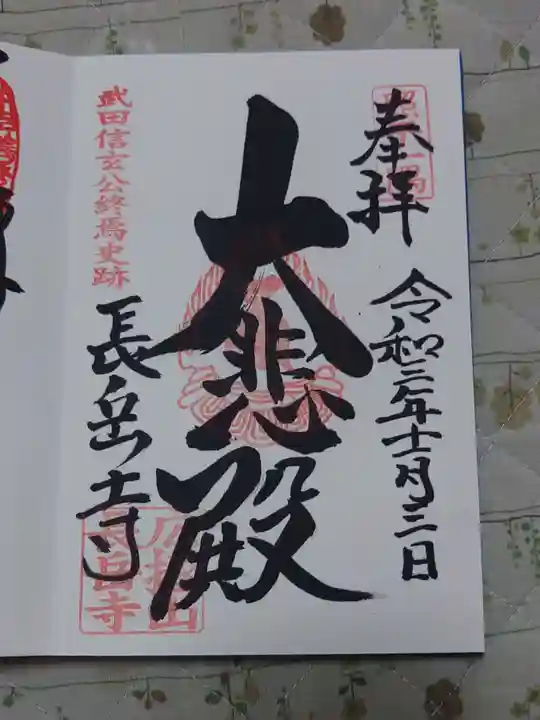 奉拝
令和二年十一月三日
大悲殿
武田信玄公終焉史跡
長岳寺
広拯山
長岳寺